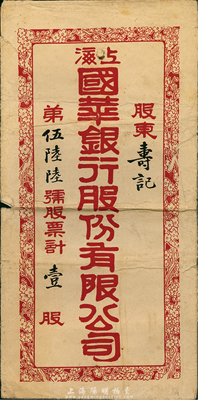 上海
國華銀行股份有限公司
股東 壽記
第伍陸陸號股票計 壹 股